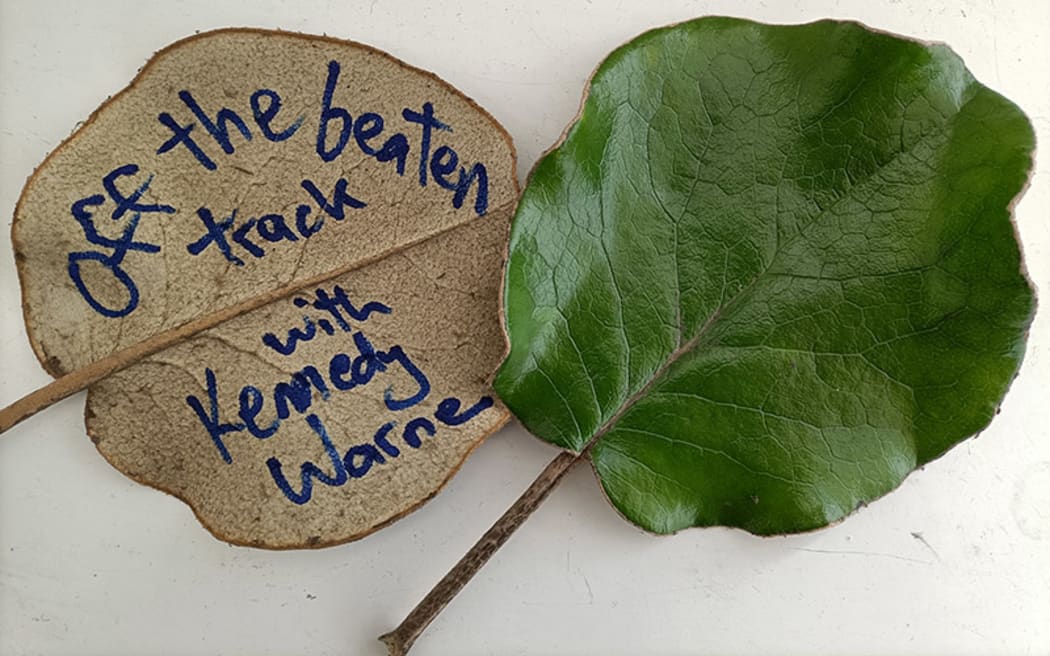 Off the beaten
track
with
Kennedy
Warne